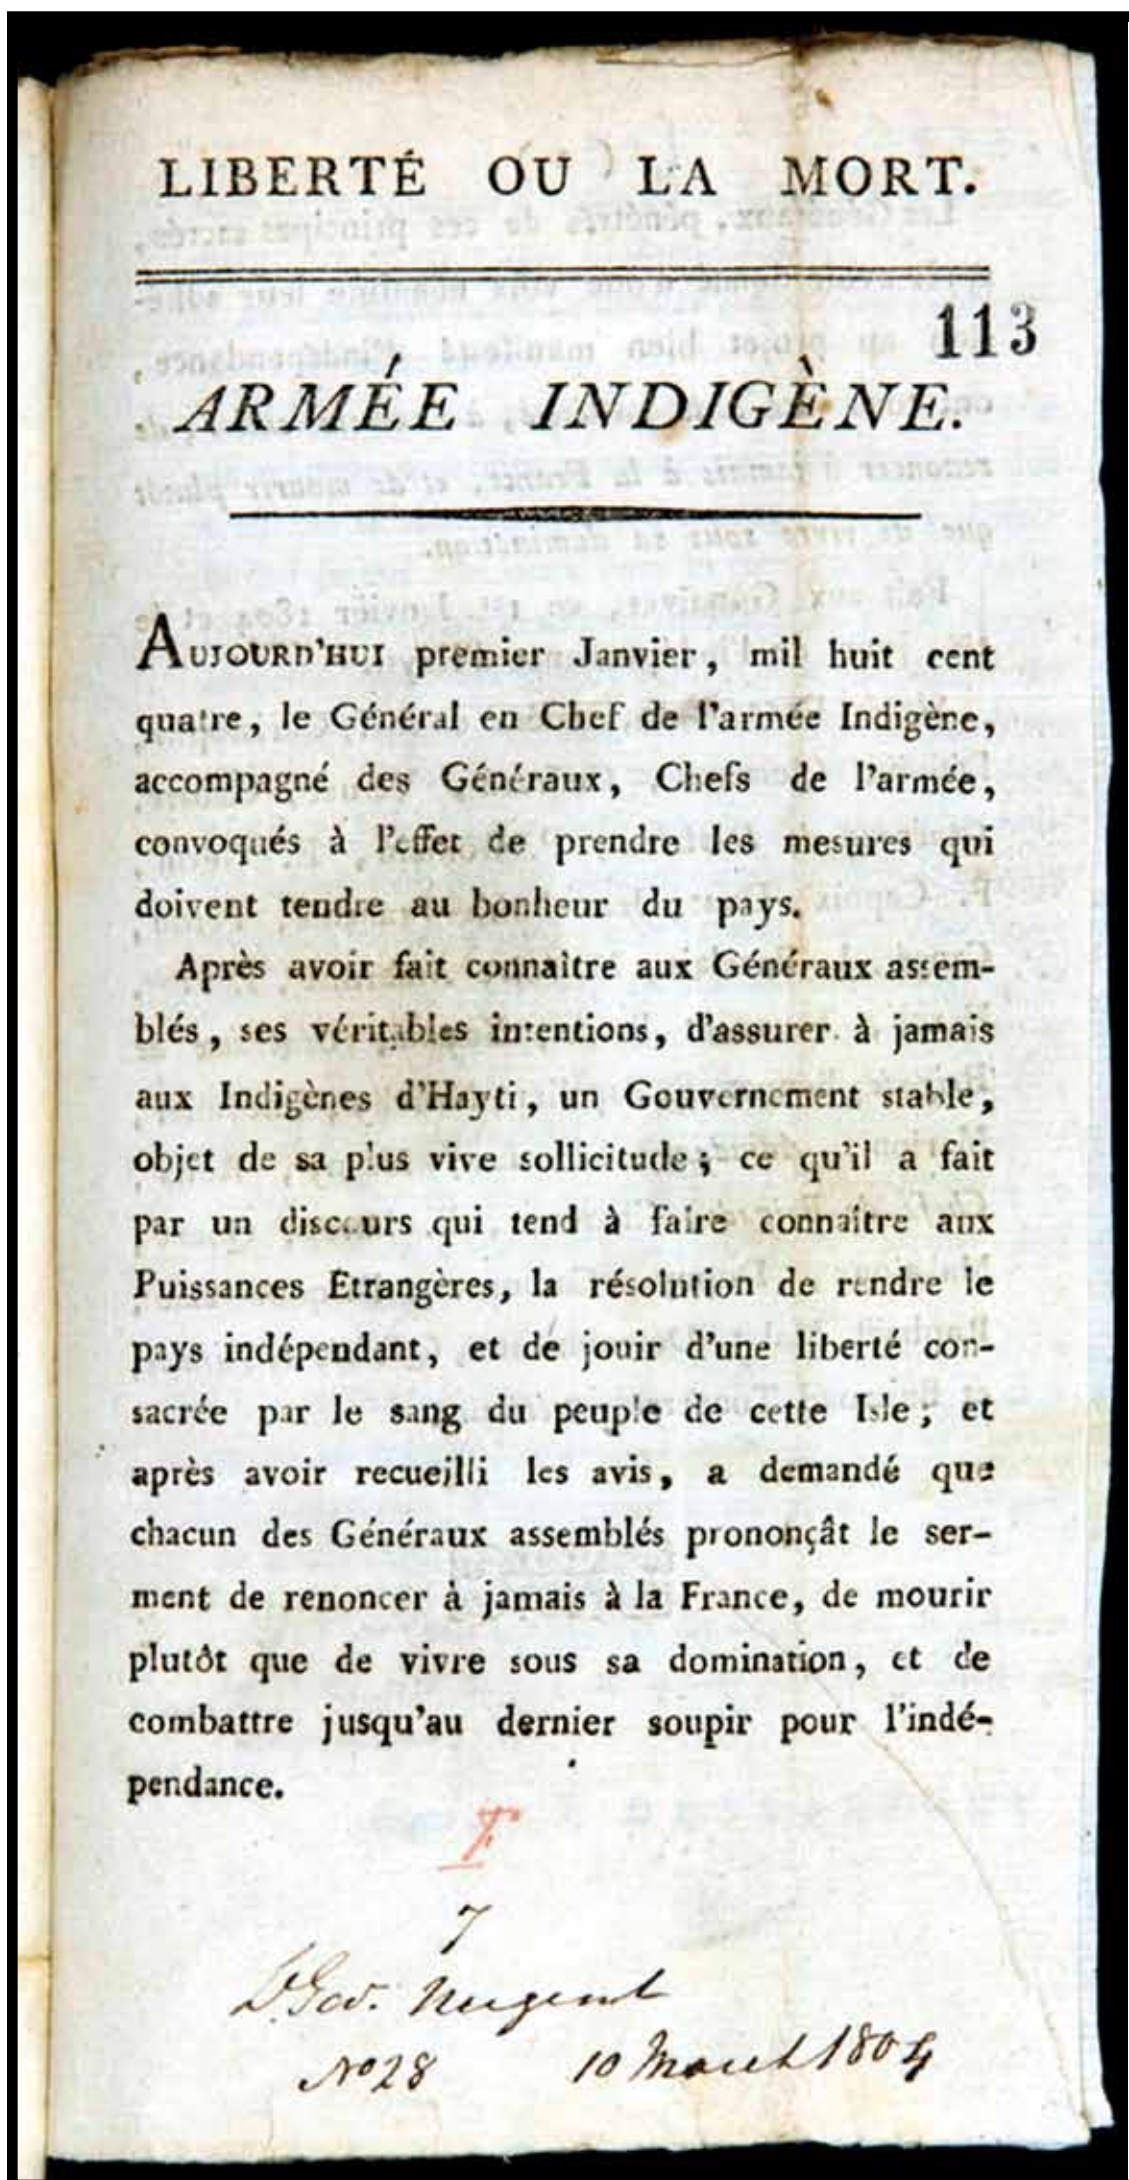 LIBERTÉ OU LA MORT.
113
ARMÉE INDIGÈNE.
AUJOURD'HUI premier Janvier, mil huit cent
quatre, le Général en Chef de l'armée Indigène,
accompagné des Généraux, Chefs de l'armée,
convoqués à l'effet de prendre les mesures qui
doivent tendre au bonheur du pays.
Après avoir fait connaître aux Généraux assem-
blés, ses véritables intentions, d'assurer à jamais
aux Indigènes d'Hayti, un Gouvernement stable,
objet de sa plus vive sollicitude; ce qu'il a fait
par un discours qui tend à faire connaître aux
Puissances Etrangères, la résolution de rendre le
pays indépendant, et de jouir d'une liberté con-
sacrée par le sang du peuple de cette Isle; et
après avoir recueilli les avis, a demandé que
chacun des Généraux assemblés prononçât le ser-
ment de renoncer à jamais à la France, de mourir
plutôt que de vivre sous sa domination, et de
combattre jusqu'au dernier soupir pour l'indé-
pendance.
7
Gov. Nugent
No 28 10 March 1804